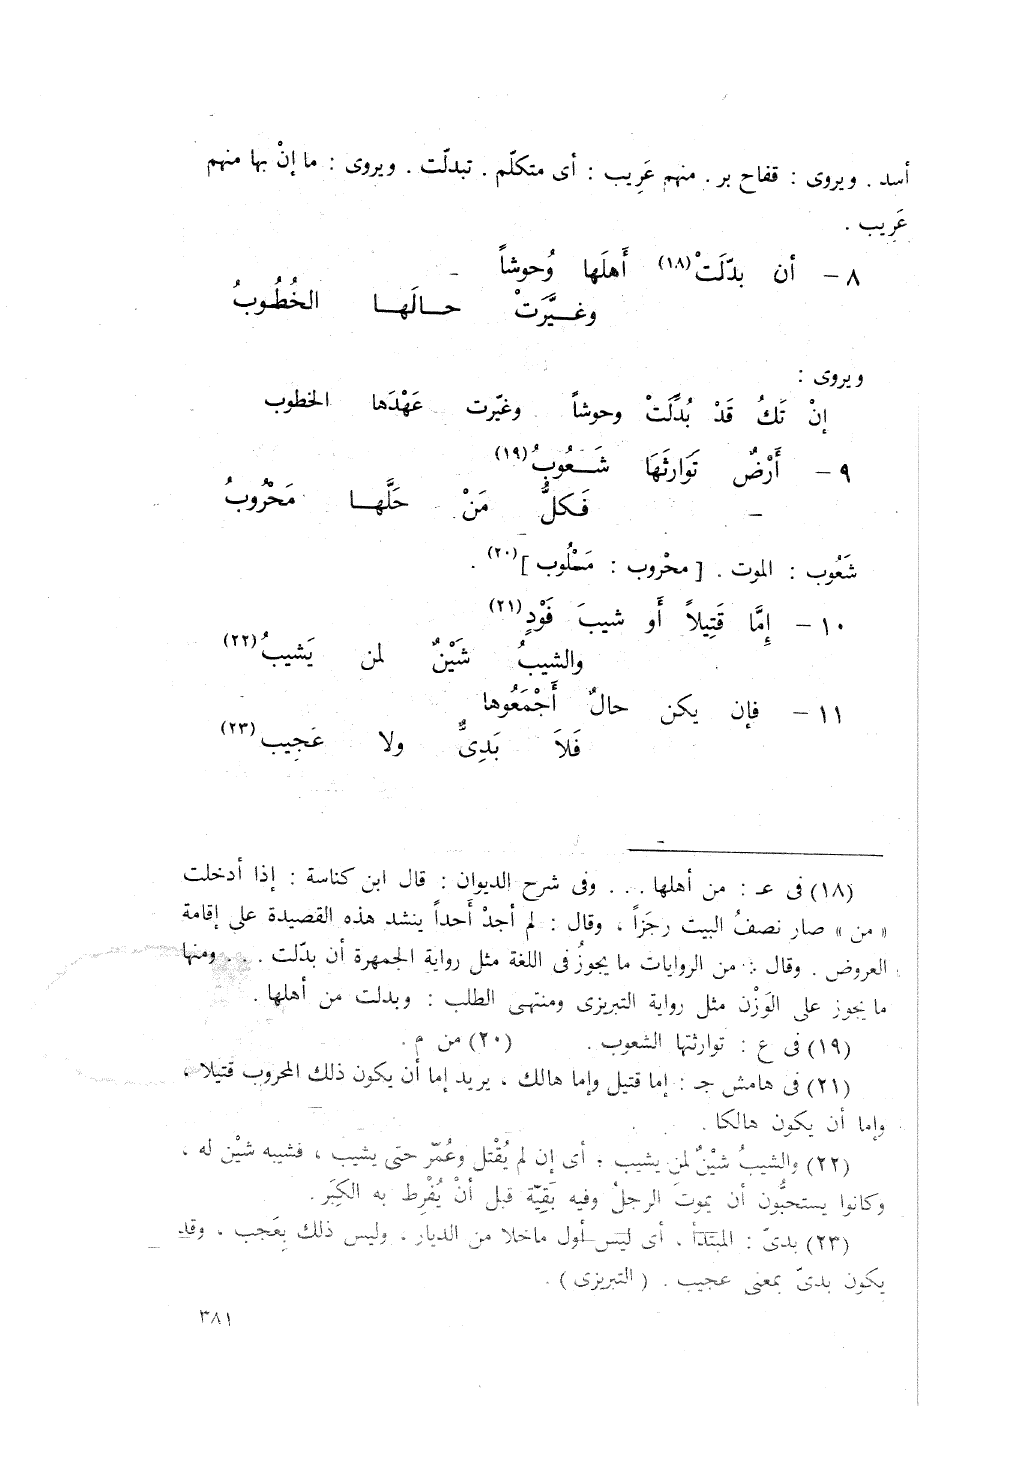 أسد . ويروى : قفاح بر . منهم عَرِيب : أى متكلّم . تبدلّت . ويروى : ما إنْ بها منهم
عَرِيب .
٨ – أن بدّلَتْ(١٨) أَهلَها وُحوشاً
وغــيَّرَتْ حــالَهـا الخُطُـوبُ
ويروى :
إنْ تَكُ قَدْ بُدِّلَتْ وحوشاً وغيّرت عَهْدَها الخطوب
٩ – أَرْضٌ تَوارثَهَا شَــعُوبُ(١٩)
فَـكلُّ مَنْ حَلَّهــا مَحْرُوبُ
شَعُوب : الموت . [ محْروب : مَسْلُوب ](٢٠) .
١٠ – إمَّا قَتِيلاً أَو شيبَ فَوْدٍ(٢١)
والشيبُ شَيْنٌ لمن يَشيبُ(٢٢)
١١ – فإن يكن حالٌ أَجْمَعُوها
فَلاَ بَدِىٌّ ولا عَجِيب(٢٣)
(١٨) فى عـ : من أهلها . . . وفى شرح الديوان : قال ابن كناسة : إذا أدخلت
« من » صار نصفُ البيت رجَزاً ، وقال : لم أجدْ أَحداً ينشد هذه القصيدة على إقامة
العروض . وقال : من الروايات ما يجوزُ فى اللغة مثل رواية الجمهرة أن بدّلت . . . ومنها
ما يجوز على الوَزْن مثل رواية التبريزى ومنتهى الطلب : وبدلت من أهلها .
(١٩) فى ع : توارثتها الشعوب . (٢٠) من م .
(٢١) فى هامش جـ : إما قتيل وإما هالك ، يريد إما أن يكون ذلك المحروب قتيلا ،
وإما أن يكون هالكا .
(٢٢) والشيبُ شيْنٌ لمن يشيب : أى إن لم يُقْتل وعُمّر حتى يشيب ، فشيبه شيْن له ،
وكانوا يستحبُّون أن يموت الرجلُ وفيه بَقِيّة قبل أنْ يُفْرِط به الكِبَر .
(٢٣) بدىّ : المبتدأ ، أى ليس أول ماخلا من الديار ، وليس ذلك بِعَجب ، وقد
يكون بدىّ بمعنى عجيب . ( التبريزى ) .
٣٨١